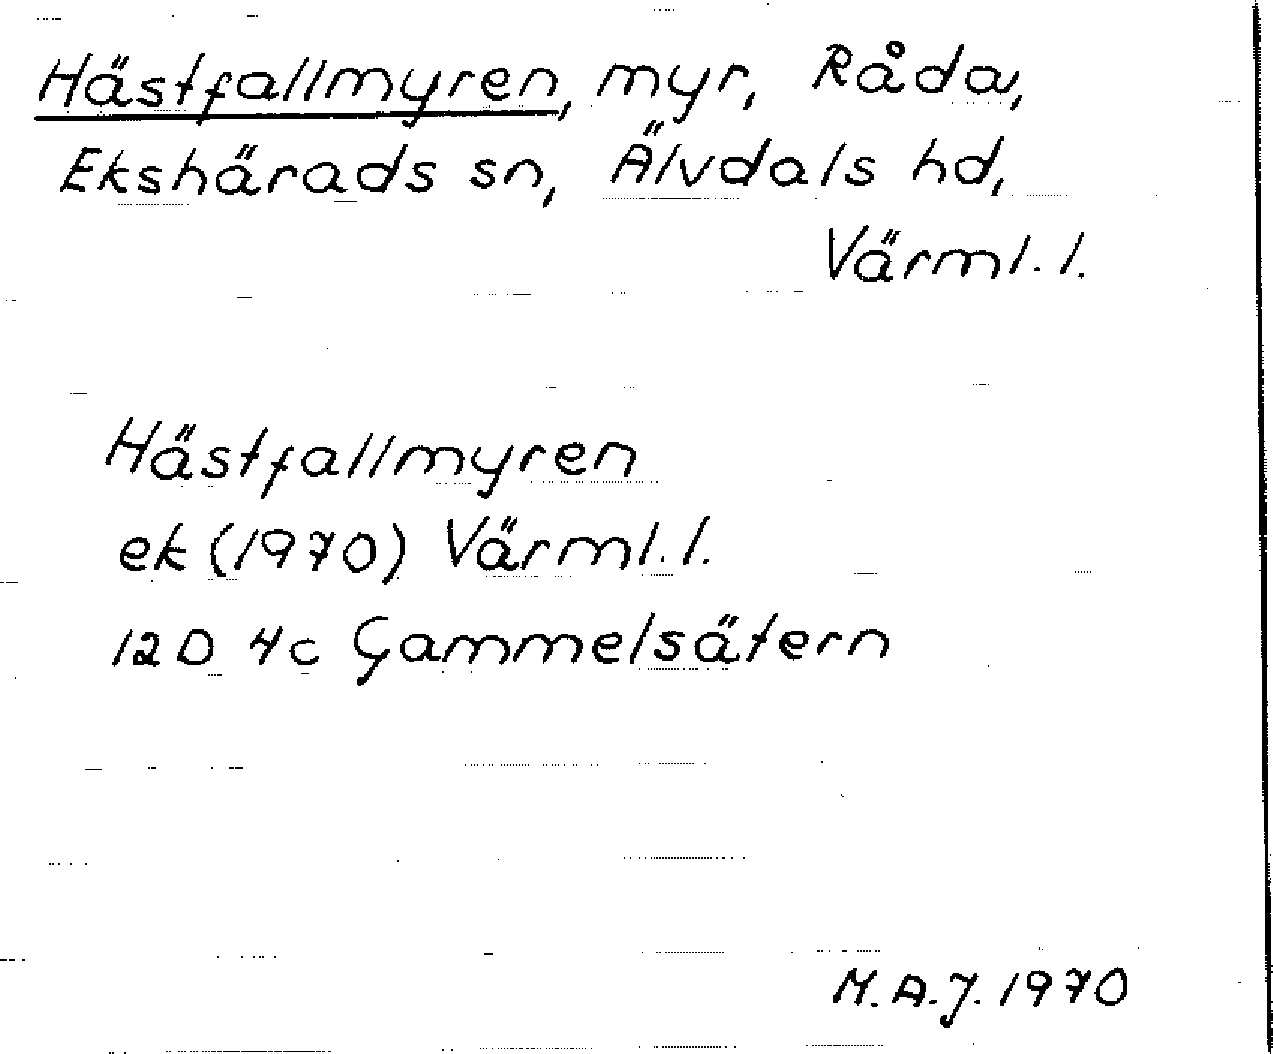 Hästfallmyren, myr, Råda,
Ekshärads sn, Älvdals hd,
Värml. l.
Hästfallmyren
ek (1970) Värml. l.
12 D 4c Gammelsätern
M.A.J. 1970